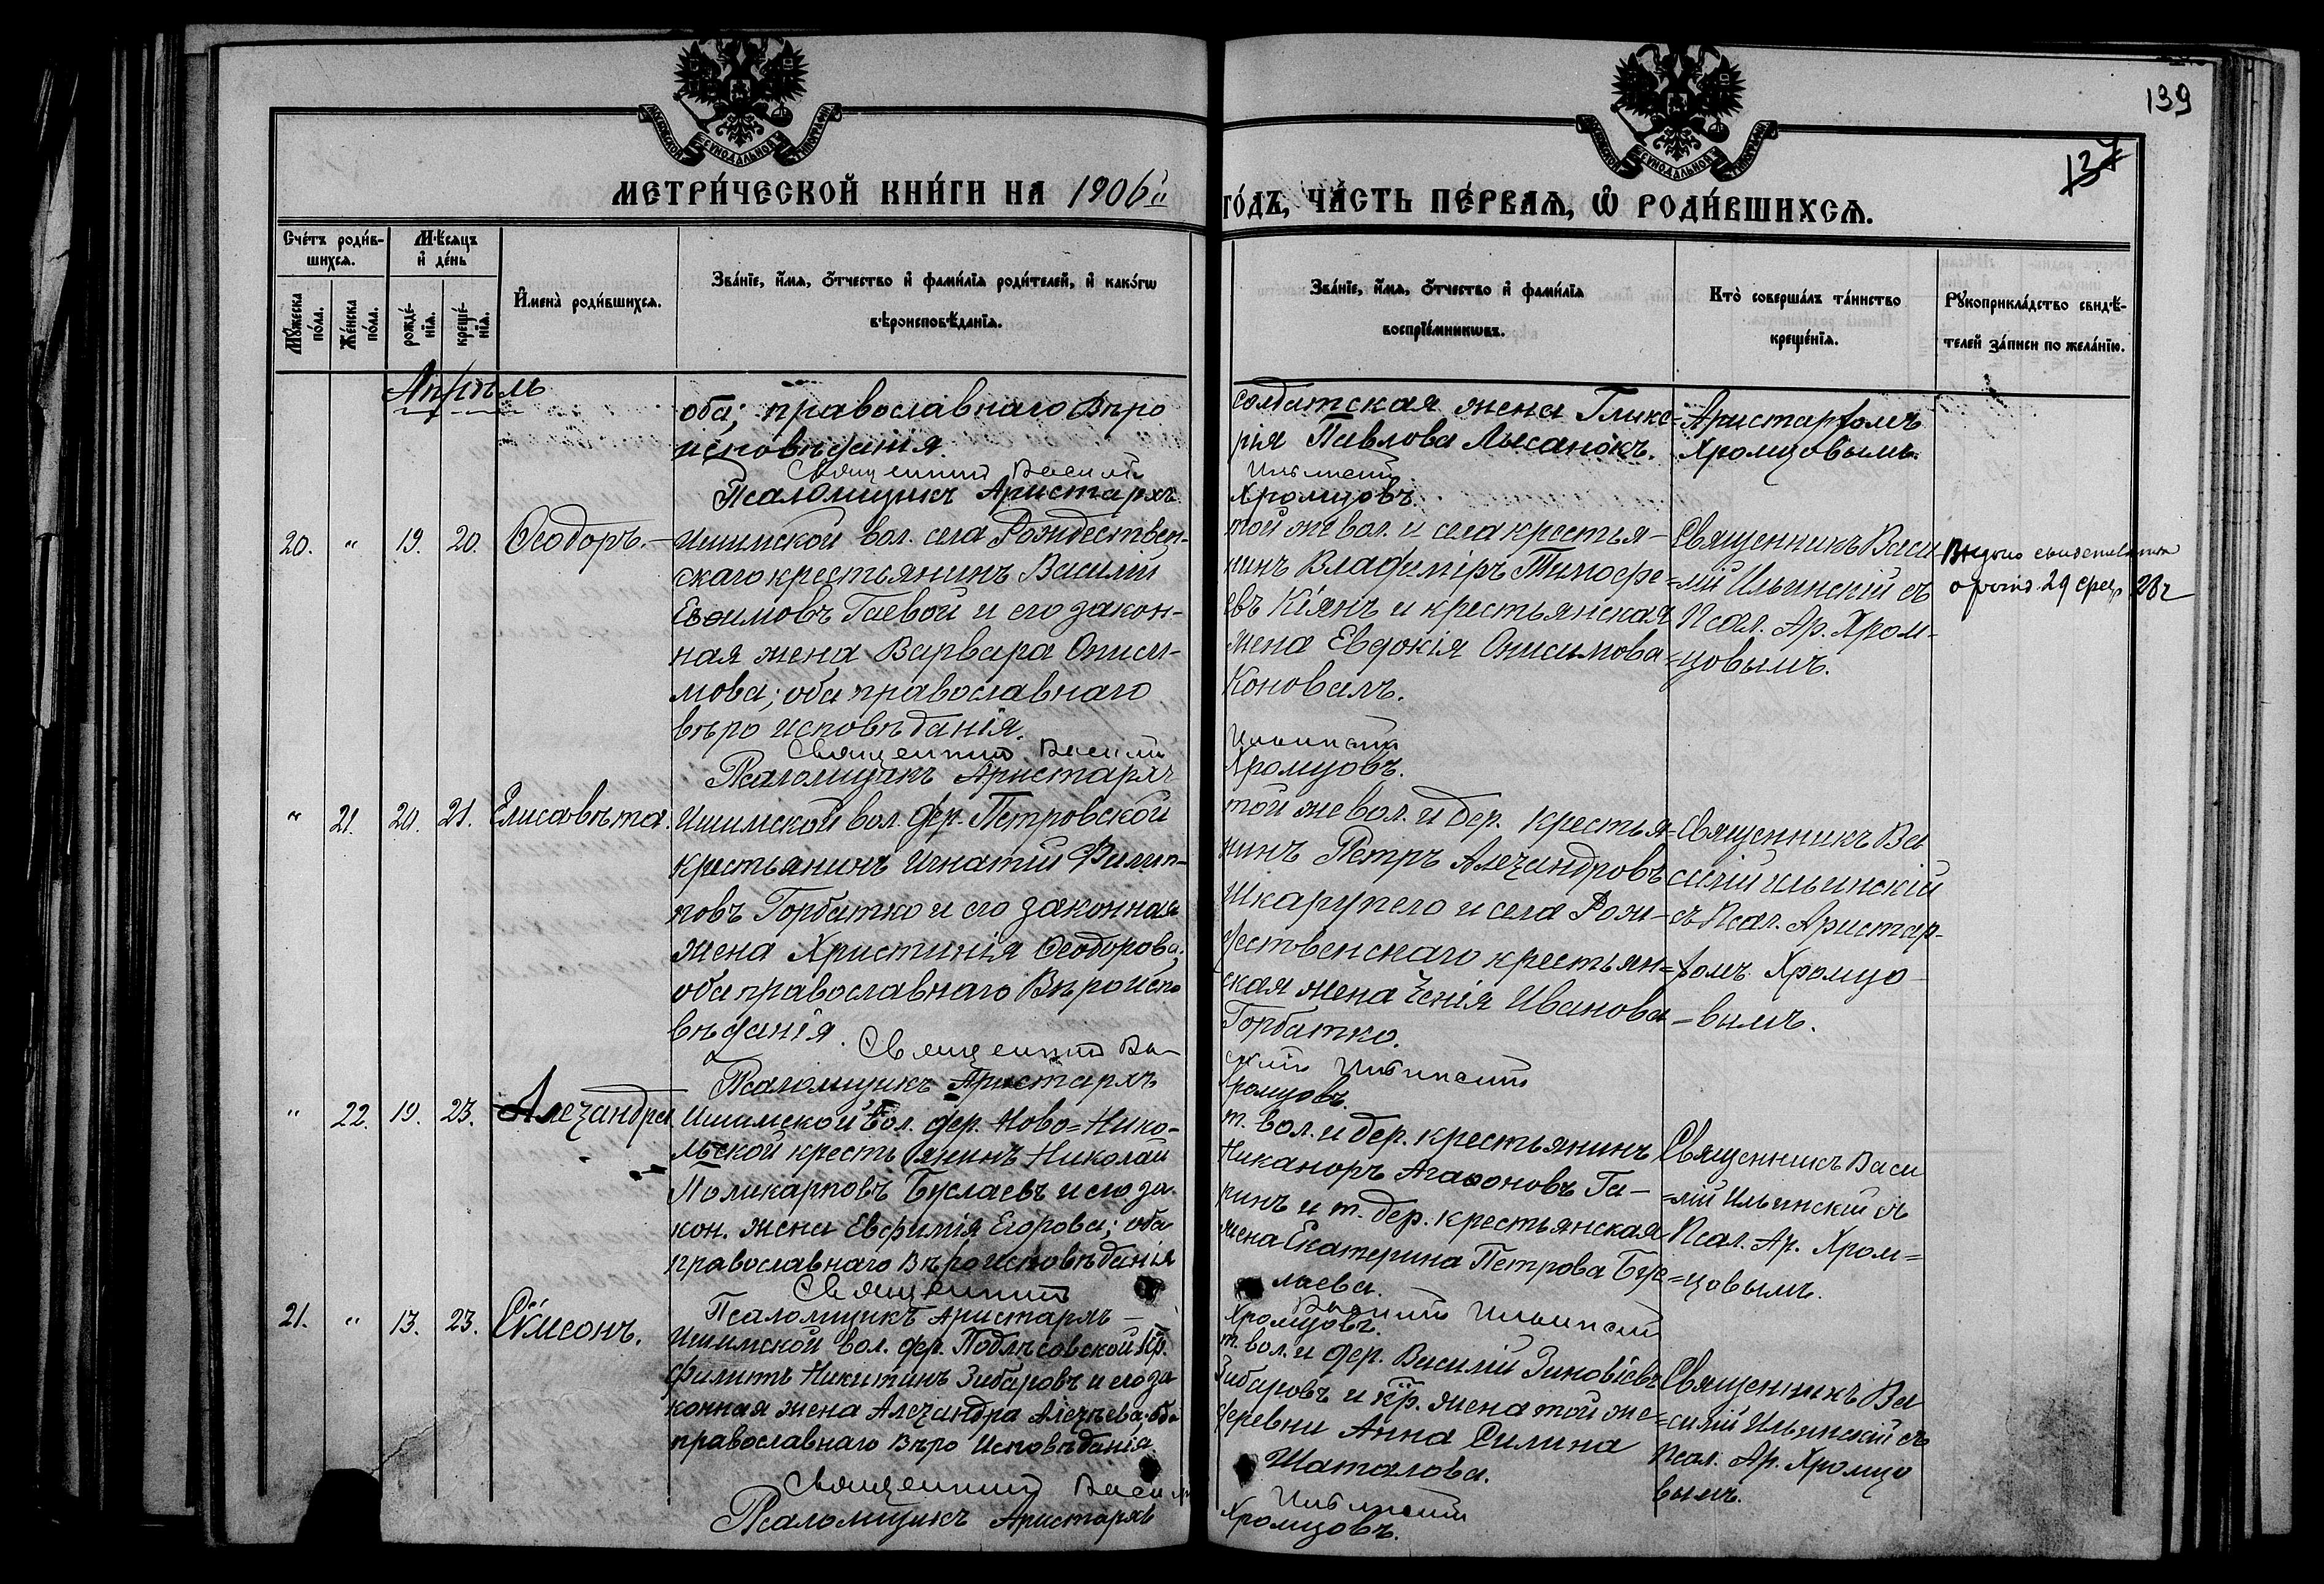 139
137
МЕТРИ́ЧЕСКОЙ КНИ́ГИ НА 1906й
ГО́ДЪ, ЧА́СТЬ ПЕ́РВАѦ, Ѡ҆ РОДИ́ВШИХСѦ.
МОСКОВСКОЙ СѴНОДАЛЬНОЙ ТИПОГРАФІИ
МОСКОВСКОЙ СѴНОДАЛЬНОЙ ТИПОГРАФІИ
Сче́тъ роди́в-
шихсѧ.
Мѣ́сѧцъ
и҆ де́нь
Мꙋ́жеска
по́ла.
Же́нска
по́ла.
рожде́-
нїѧ.
креще́-
нїѧ.
И҆мена̀ роди́вшихсѧ.
Зва́нїе, и҆́мѧ, ѻ҆́тчество и҆ фами́лїѧ роди́телей, и҆ како́гѡ
вѣроисповѣ́данїѧ.
Зва́нїе, и҆́мѧ, ѻ҆́тчество и҆ фами́лїѧ
воспрїе́мникѡвъ.
Кто̀ соверша́лъ та́инство
креще́нїѧ.
Рꙋкоприкла́дство свидѣ́-
телей за́писи по жела́нїю.
Апрѣль
оба; православнаго Вѣро
исповѣданія.
Священникъ Василій
Псаломщикъ Аристархъ
солдатская жена Глике-
рія Павлова Лысанокъ.
Ильинскій
Хромцовъ.
Аристархомъ
Хромцовымъ.
20. " 19. 20. Ѳеодоръ.
Ишимской вол. села Рождествен-
скаго крестьянинъ Василій
Евѳимовъ Гаевой и его закон-
ная жена ВарвараОниси-
мова; оба православнаго
вѣро исповѣданія.
Священникъ Василій
Псаломщикъ Аристархъ
той же вол. и села крестья-
нинъ Владиміръ Тимофе-
евъ Кіянъ и крестьянская
жена Евдокія Онисимова
Коновалъ.
Ильинскій
Хромцовъ.
Священникъ Васи
лій Ильинскій съ
Псал. Ар. Хром-
цовымъ.
Выдано
29
" 21. 20. 21. Елисавѣта.
Ишимской вол. дер. Петровской
крестьянинъ Игнатій Филип-
повъ Горбатко и его законная
жена Христинія Ѳеодорова;
оба православнаго Вѣроиспо
вѣданія.
Священникъ Ва-
Псаломщикъ Аристархъ
той же вол. и дер. крестья-
нинъ Петръ Алеѯандровъ
Шкарупело и села Рож-
дественскаго крестьян-
ская жена Ѯенія Иванова
Горбатко.
силій Ильинскій
Хромцовъ.
Священникъ Ва
силій Ильинскій
съ Псал. Аристар-
хомъ Хромцо-
вымъ.
" 22. 19. 23. Алеѯандра
Ишимской вол. дер. Ново=Нико-
льской крестьянинъ Николай
Поликарповъ Буслаевъ и его за
кон. жена Евфимія Егорова; оба
православнаго Вѣроисповѣданія
Священникъ
Псаломщикъ Аристархъ
т. вол. и дер. крестьянинъ
Никаноръ Агаѳоновъ Га-
нинъ и т. дер. крестьянская
жена Екатерина Петрова Бус-
лаева.
Василій Ильинскій
Хромцовъ.
Священникъ Васи
=лій Ильинскій съ
Псал. Ар. Хром=
=цовымъ.
21. " 13. 23. Сѵмеонъ.
Ишимской вол. дер. Подлѣсовской кр.
Филипъ Никитинъ Зибаровъ и его за
конная жена Алеѯандра Алеѯѣева; оба
православнаго Вѣро Исповѣданія.
Священникъ Василій
Псаломщикъ Аристархъ
т. вол. и дер. Василій Зиновіевъ
Зибаровъ и кр. жена той же
деревни Анна Силина
Шаталова.
Ильинскій
Хромцовъ.
Священникъ Ва
=силій Ильинскій съ
Псал. Ар. Хромцо
вымъ.